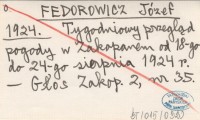 FEDOROWICZ Józef
1924. Tygodniowy przegląd
pogody w Zakopanem od 18-go
do 24-go sierpnia 1924 r.
— Głos Zakop. 2, nr 35.